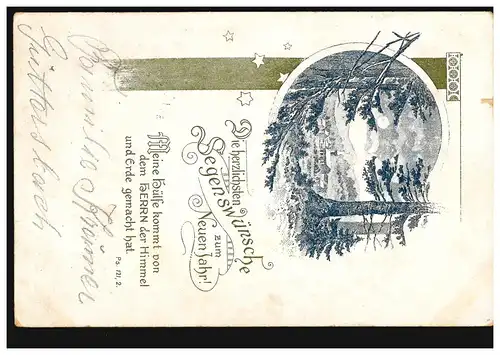 Die herzlichsten
Segenswünsche
zum
Neuen Jahr!
Meine Hülfe kommt von
dem HERRN der Himmel
und Erde gemacht hat.
Ps. 121, 2.
Familie